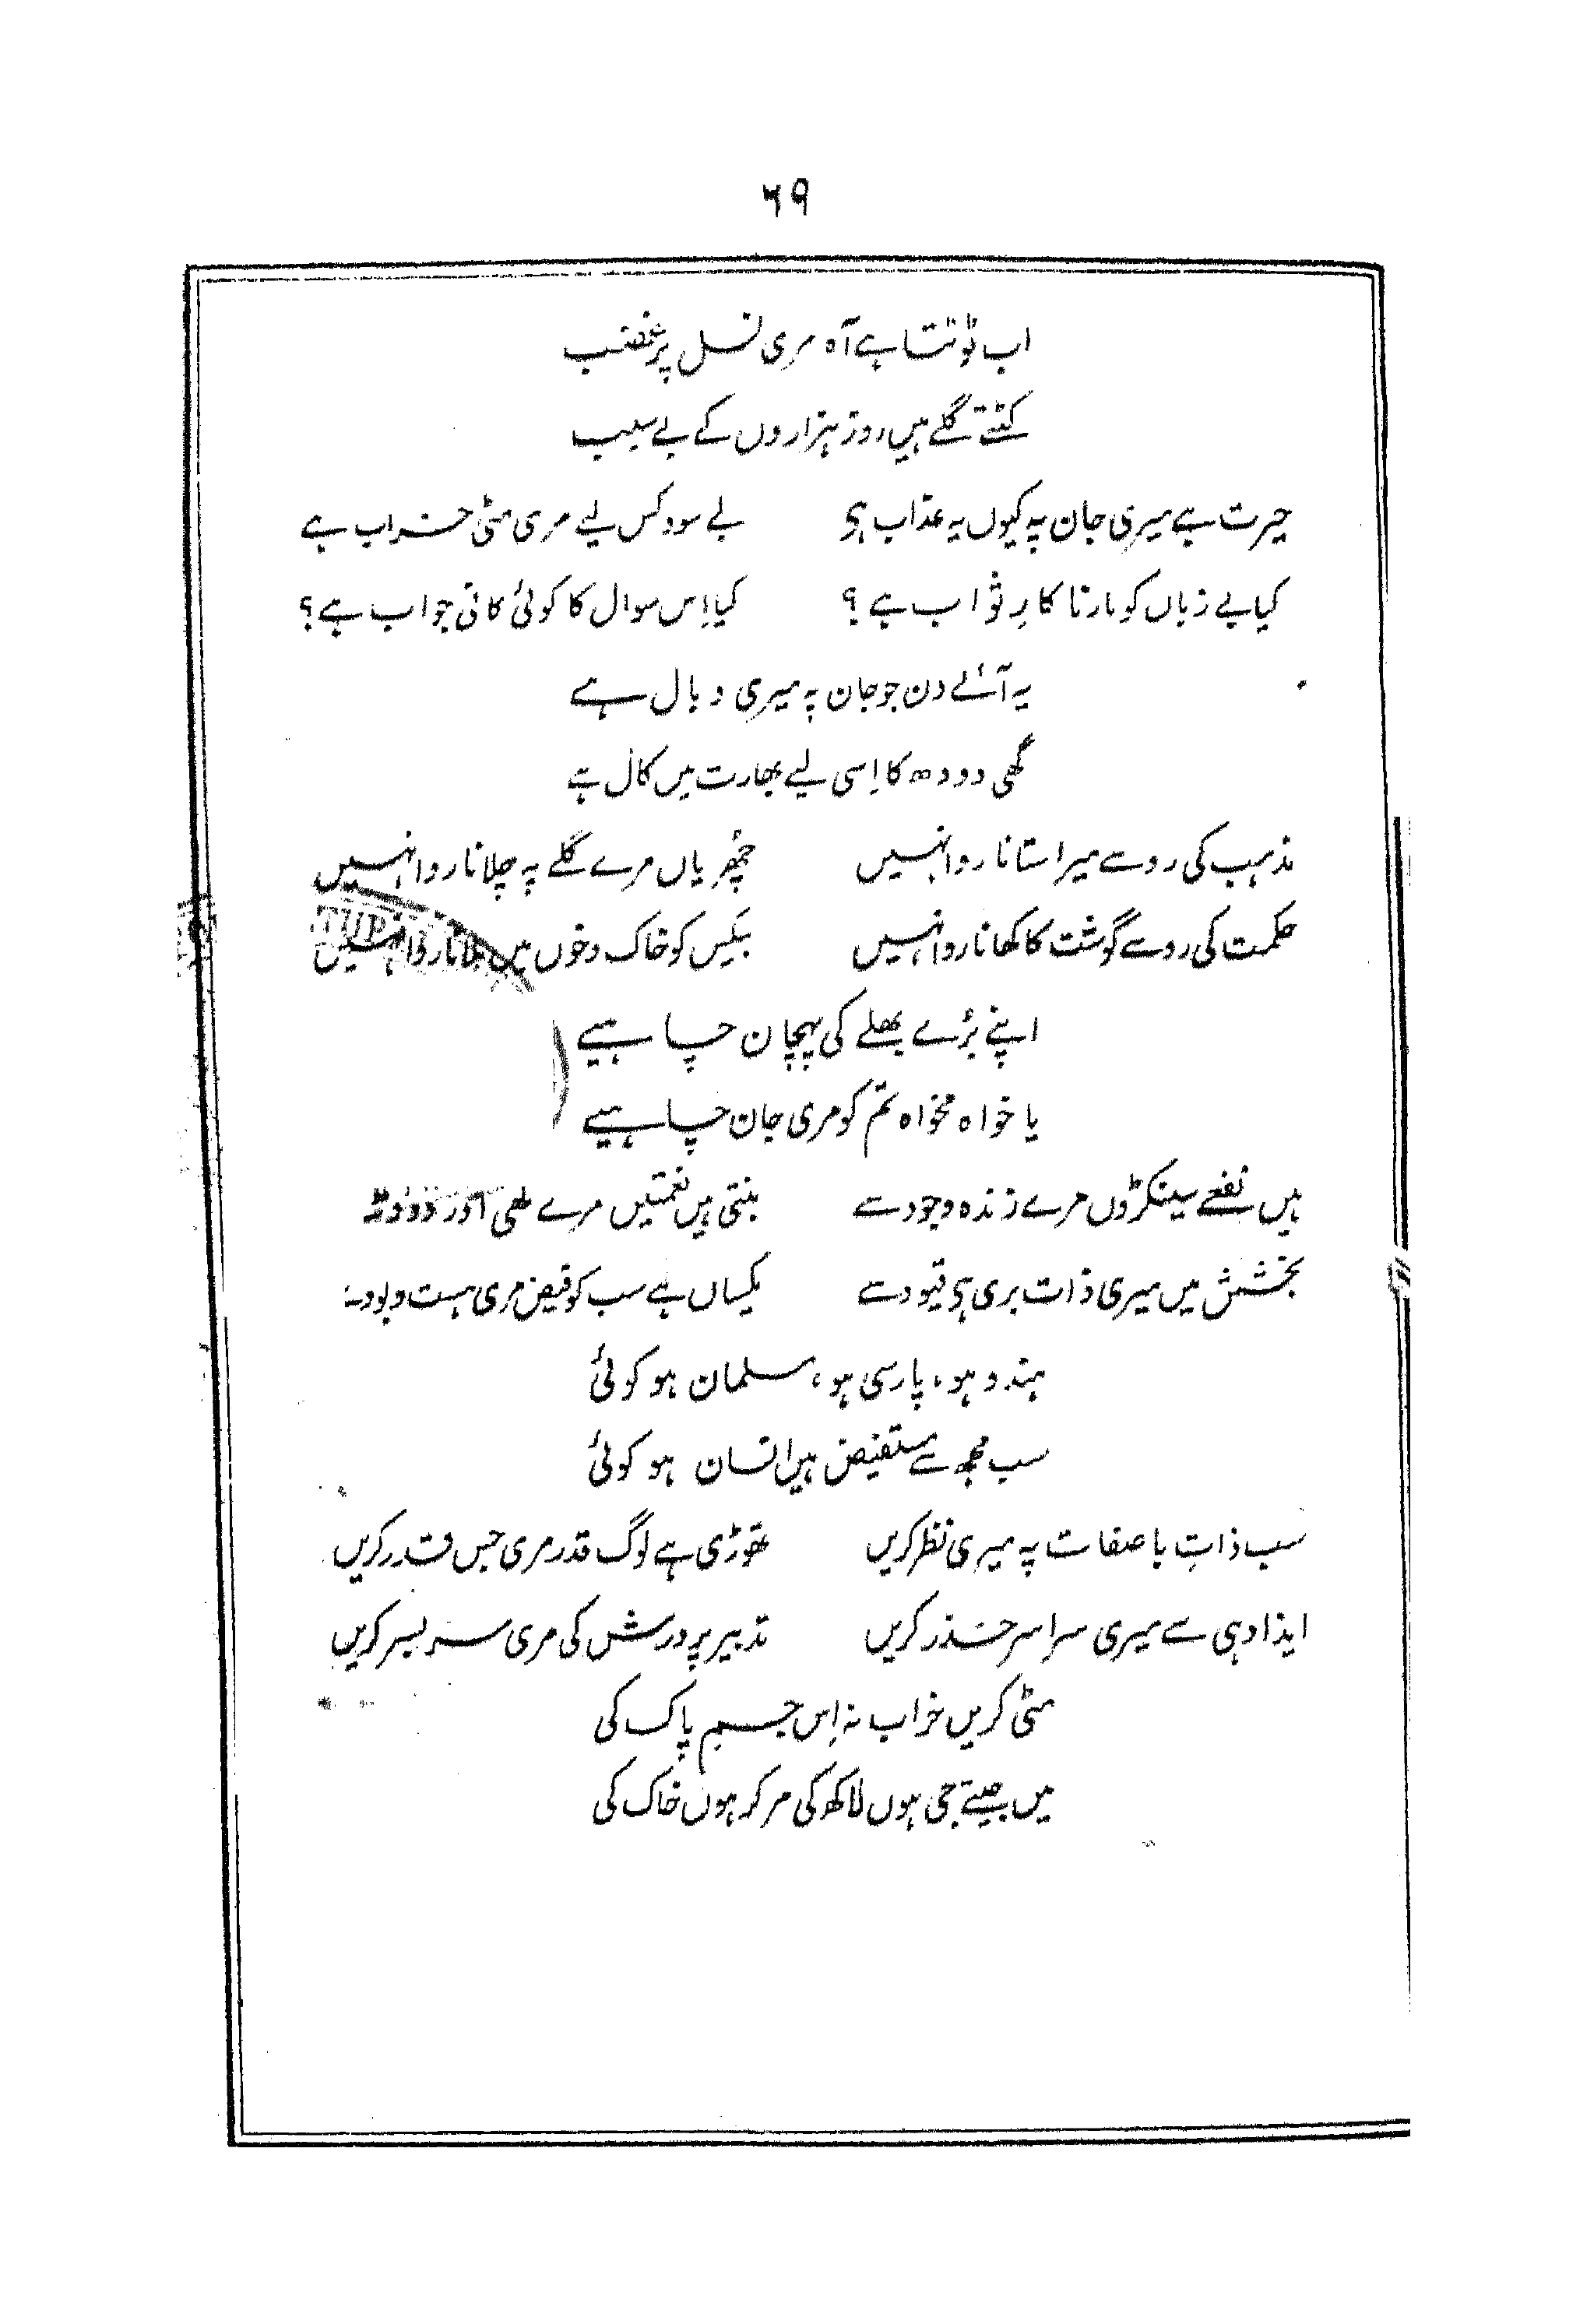 ۶۹
اب ٹوٹتا ہے آہ مری نسل پر غضب
کٹتے گلے ہیں روز ہزاروں کے بے سبب
حیرت ہے میری جان پہ کیوں یہ عذاب ہی بے سود کس لیے مری مٹی خراب ہے
کیا بے زباں کو مارنا کارِ ثواب ہے ؟ کیا اِس سوال کا کوئی کافی جواب ہے ؟
یہ آئے دن جو جان پہ میری وبال ہے
گھی دودھ کا اِسی لیے بھارت میں کال ہے
مذہب کی رو سے میرا ستانا روا نہیں چھُریاں مرے گلے پہ چلانا روا نہیں
حکمت کی رو سے گوشت کا کھانا روا نہیں بیکس کو خاک و خوں میں ملانا روا نہیں
اپنے بُرے بھلے کی پہچان چاہیے
یا خواہ مخواہ تم کو مری جان چاہیے
ہیں نفعے سینکڑوں مرے زندہ وجود سے بنتی ہیں نعمتیں مرے گھی اور دودھ سے
بخشش میں میری ذات بری ہی قیود سے یکساں ہے سب کو فیض مری ہست و بود سے
ہندو ہو، پارسی ہو، مسلمان ہو کوئی
سب مجھ سے مستفیض ہیں انسان ہو کوئی
سب ذاتِ باصفات پہ میری نظر کریں تھوڑی ہے لوگ قدر مری جس قدر کریں
ایذا دہی سے میری سراسر حذر کریں تدبیر پرورش کی مری سربسر کریں
مٹی کریں خراب نہ اِس جسمِ پاک کی
میں جیتے جی ہوں لاکھ کی مر کر ہوں خاک کی